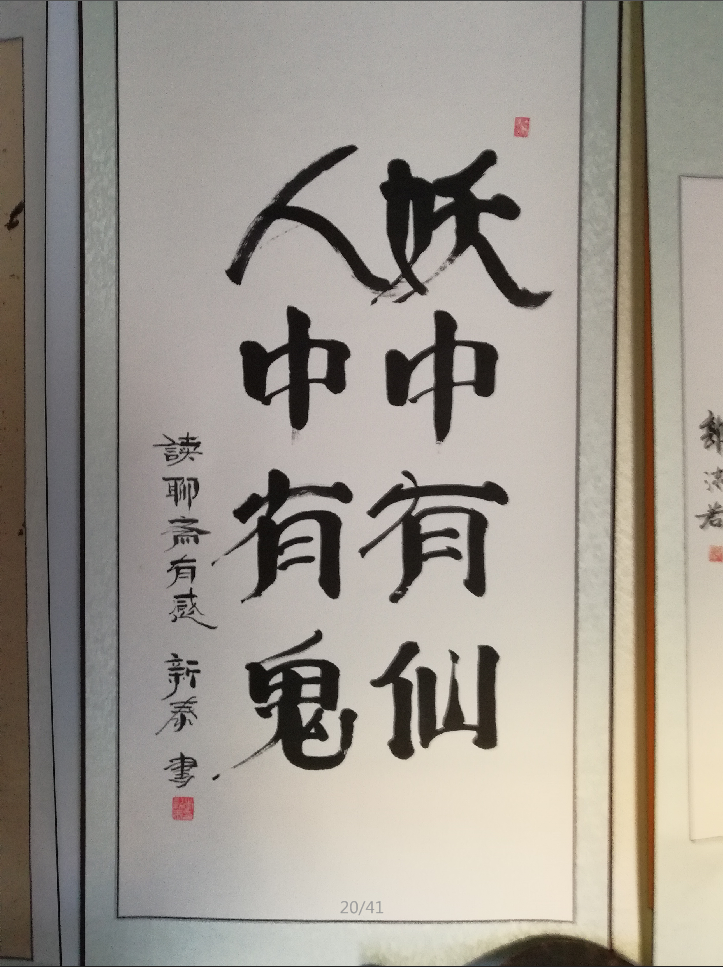 妖中有仙
人中有鬼
读聊斋有感 新泰書
20/41